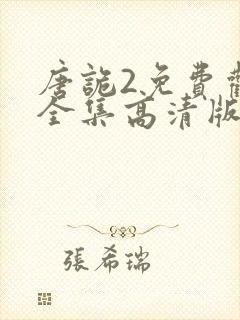 唐詭2免費
全集高清版
張希瑞